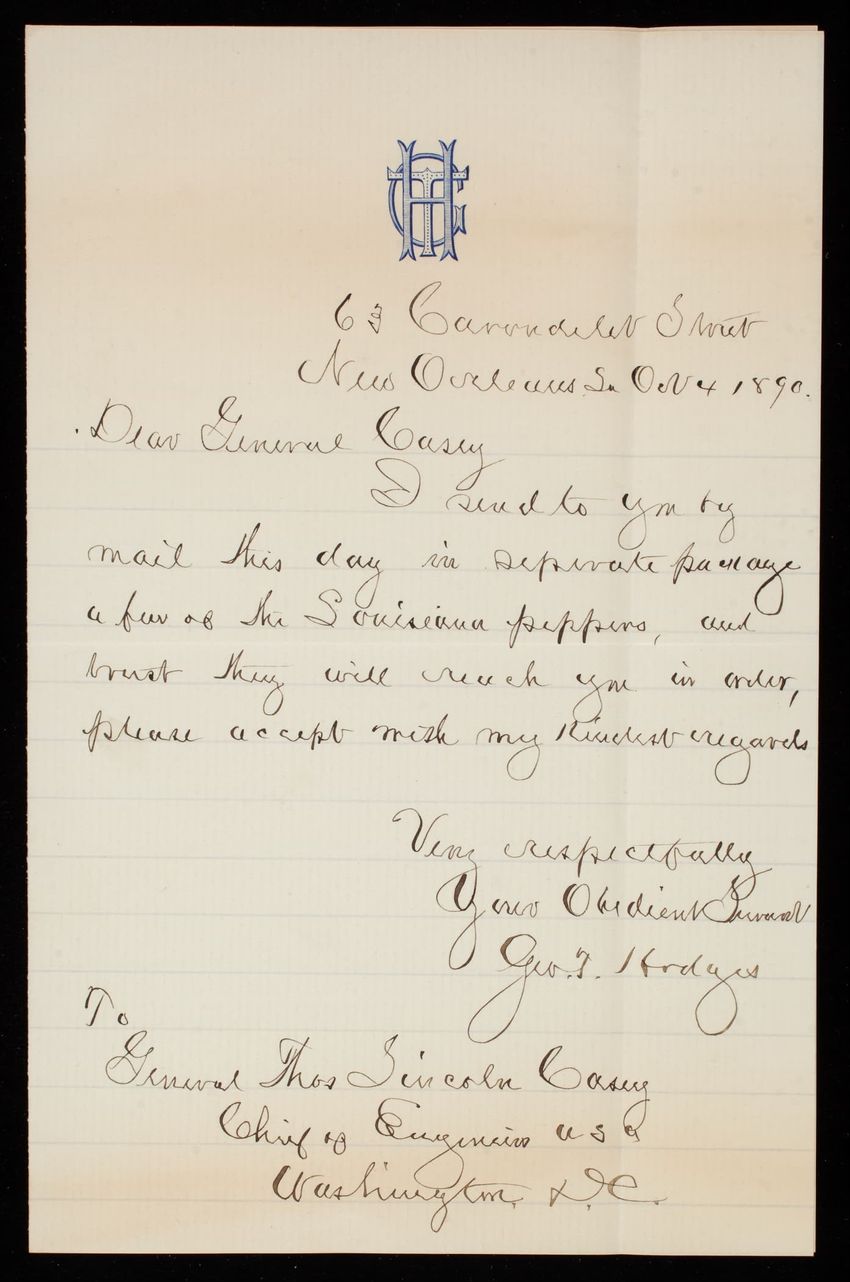 GTH
63 Carondelet Street
New Orleans La Oct 4 1890.
Dear General Casey
I send to you by
mail this day in seperate package
a few of the Louisiana peppers, and
trust they will reach you in order,
please accept with my kindest regards
Very respectfully
Your Obedient Servant
Geo. T. Hodges
To
General Thos Lincoln Casey
Chief of Engineers U S A
Washington. D.C.